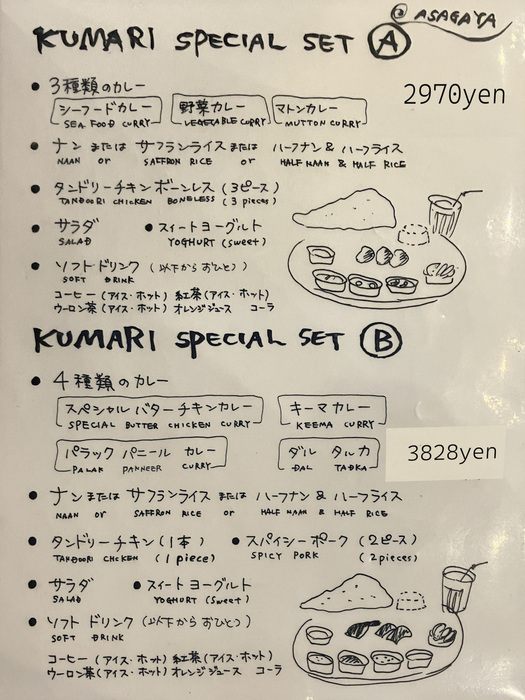 @ ASAGAYA
KUMARI SPECIAL SET A
2970yen
• 3種類のカレー
シーフードカレー 野菜カレー マトンカレー
SEA FOOD CURRY VEGETABLE CURRY MUTTON CURRY
• ナン または サフランライス または ハーフナン & ハーフライス
NAAN or SAFFRON RICE or HALF NAAN & HALF RICE
• タンドリーチキン ボーンレス (3ピース)
TANDOORI CHICKEN BONELESS (3 pieces)
• サラダ • スイートヨーグルト
SALAD YOGHURT (sweet)
• ソフトドリンク (以下からおひとつ)
SOFT DRINK
コーヒー (アイス・ホット) 紅茶 (アイス・ホット)
ウーロン茶 (アイス・ホット) オレンジジュース コーラ
KUMARI SPECIAL SET B
• 4種類のカレー
スペシャル バターチキンカレー キーマカレー
SPECIAL BUTTER CHICKEN CURRY KEEMA CURRY
パラック パニール カレー ダル タルカ
PALAK PANNEER CURRY DAL TADKA
3828yen
• ナン または サフランライス または ハーフナン & ハーフライス
NAAN or SAFFRON RICE or HALF NAAN & HALF RICE
• タンドリーチキン (1本) • スパイシーポーク (2ピース)
TANDOORI CHICKEN (1 piece) SPICY PORK (2 pieces)
• サラダ • スイートヨーグルト
SALAD YOGHURT (sweet)
• ソフトドリンク (以下からおひとつ)
SOFT DRINK
コーヒー (アイス・ホット) 紅茶 (アイス・ホット)
ウーロン茶 (アイス・ホット) オレンジジュース コーラ